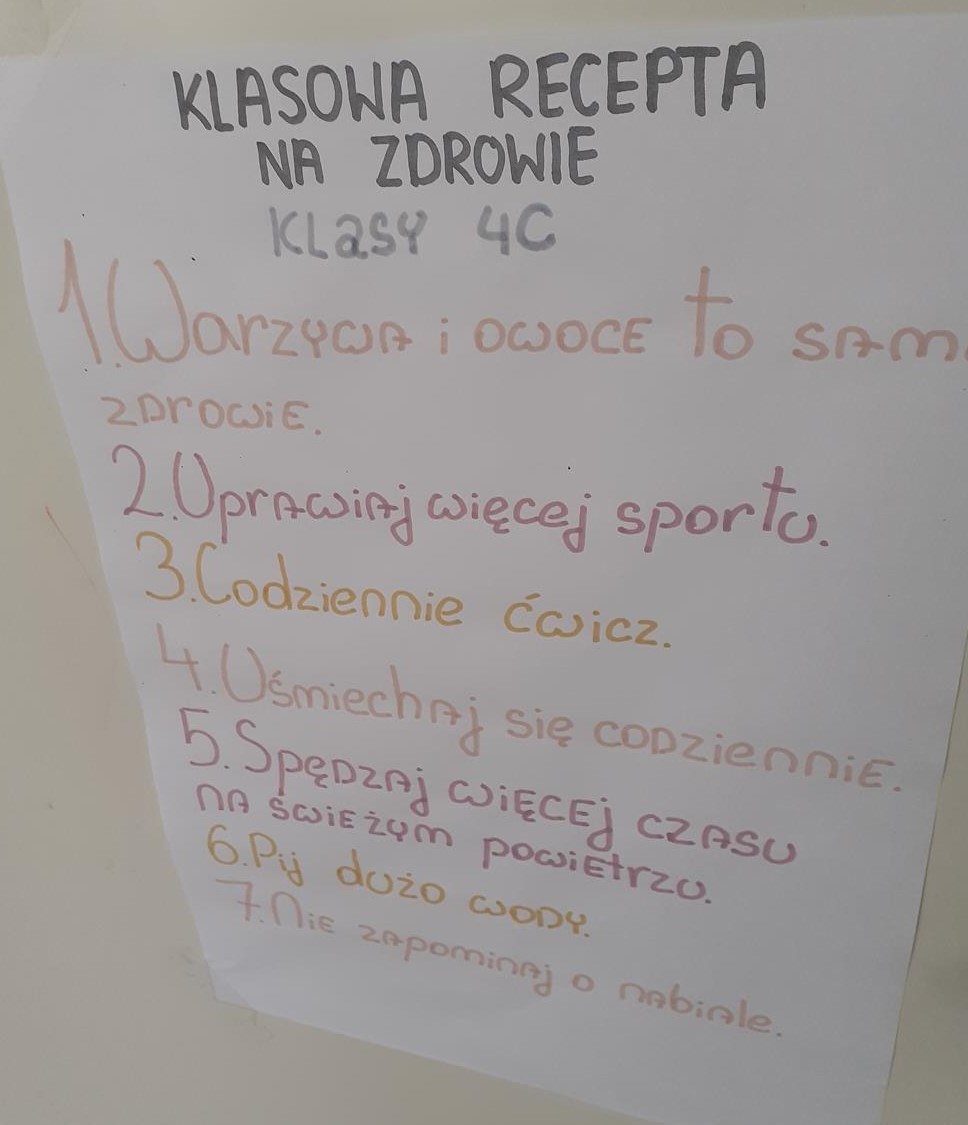 KLASOWA RECEPTA
NA ZDROWIE
Klasy 4C
1. Warzywa i owoce to sam
zdrowie.
2. Uprawiaj więcej sportu.
3. Codziennie ćwicz.
4. Uśmiechaj się codziennie.
5. Spędzaj więcej czasu
na świeżym powietrzu.
6. Pij dużo wody.
7. Nie zapominaj o nabiale.